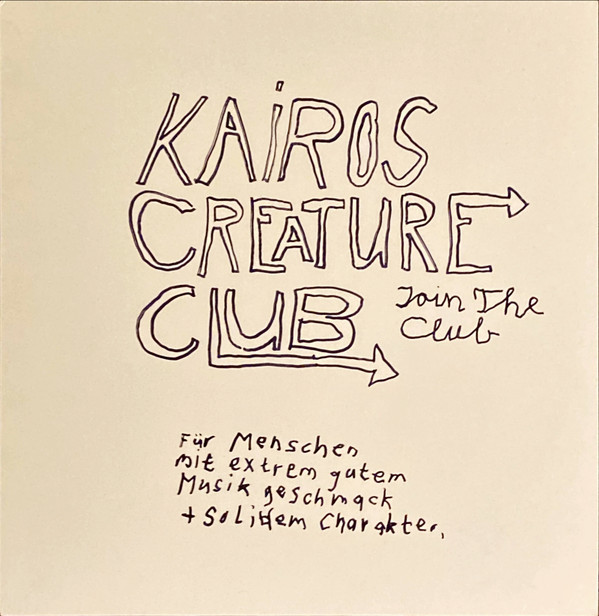 KAiROS
CREATURE
CLUB
Join The
Club
Für Menschen
mit extrem gutem
Musik geschmack
+ Solidem Charakter.